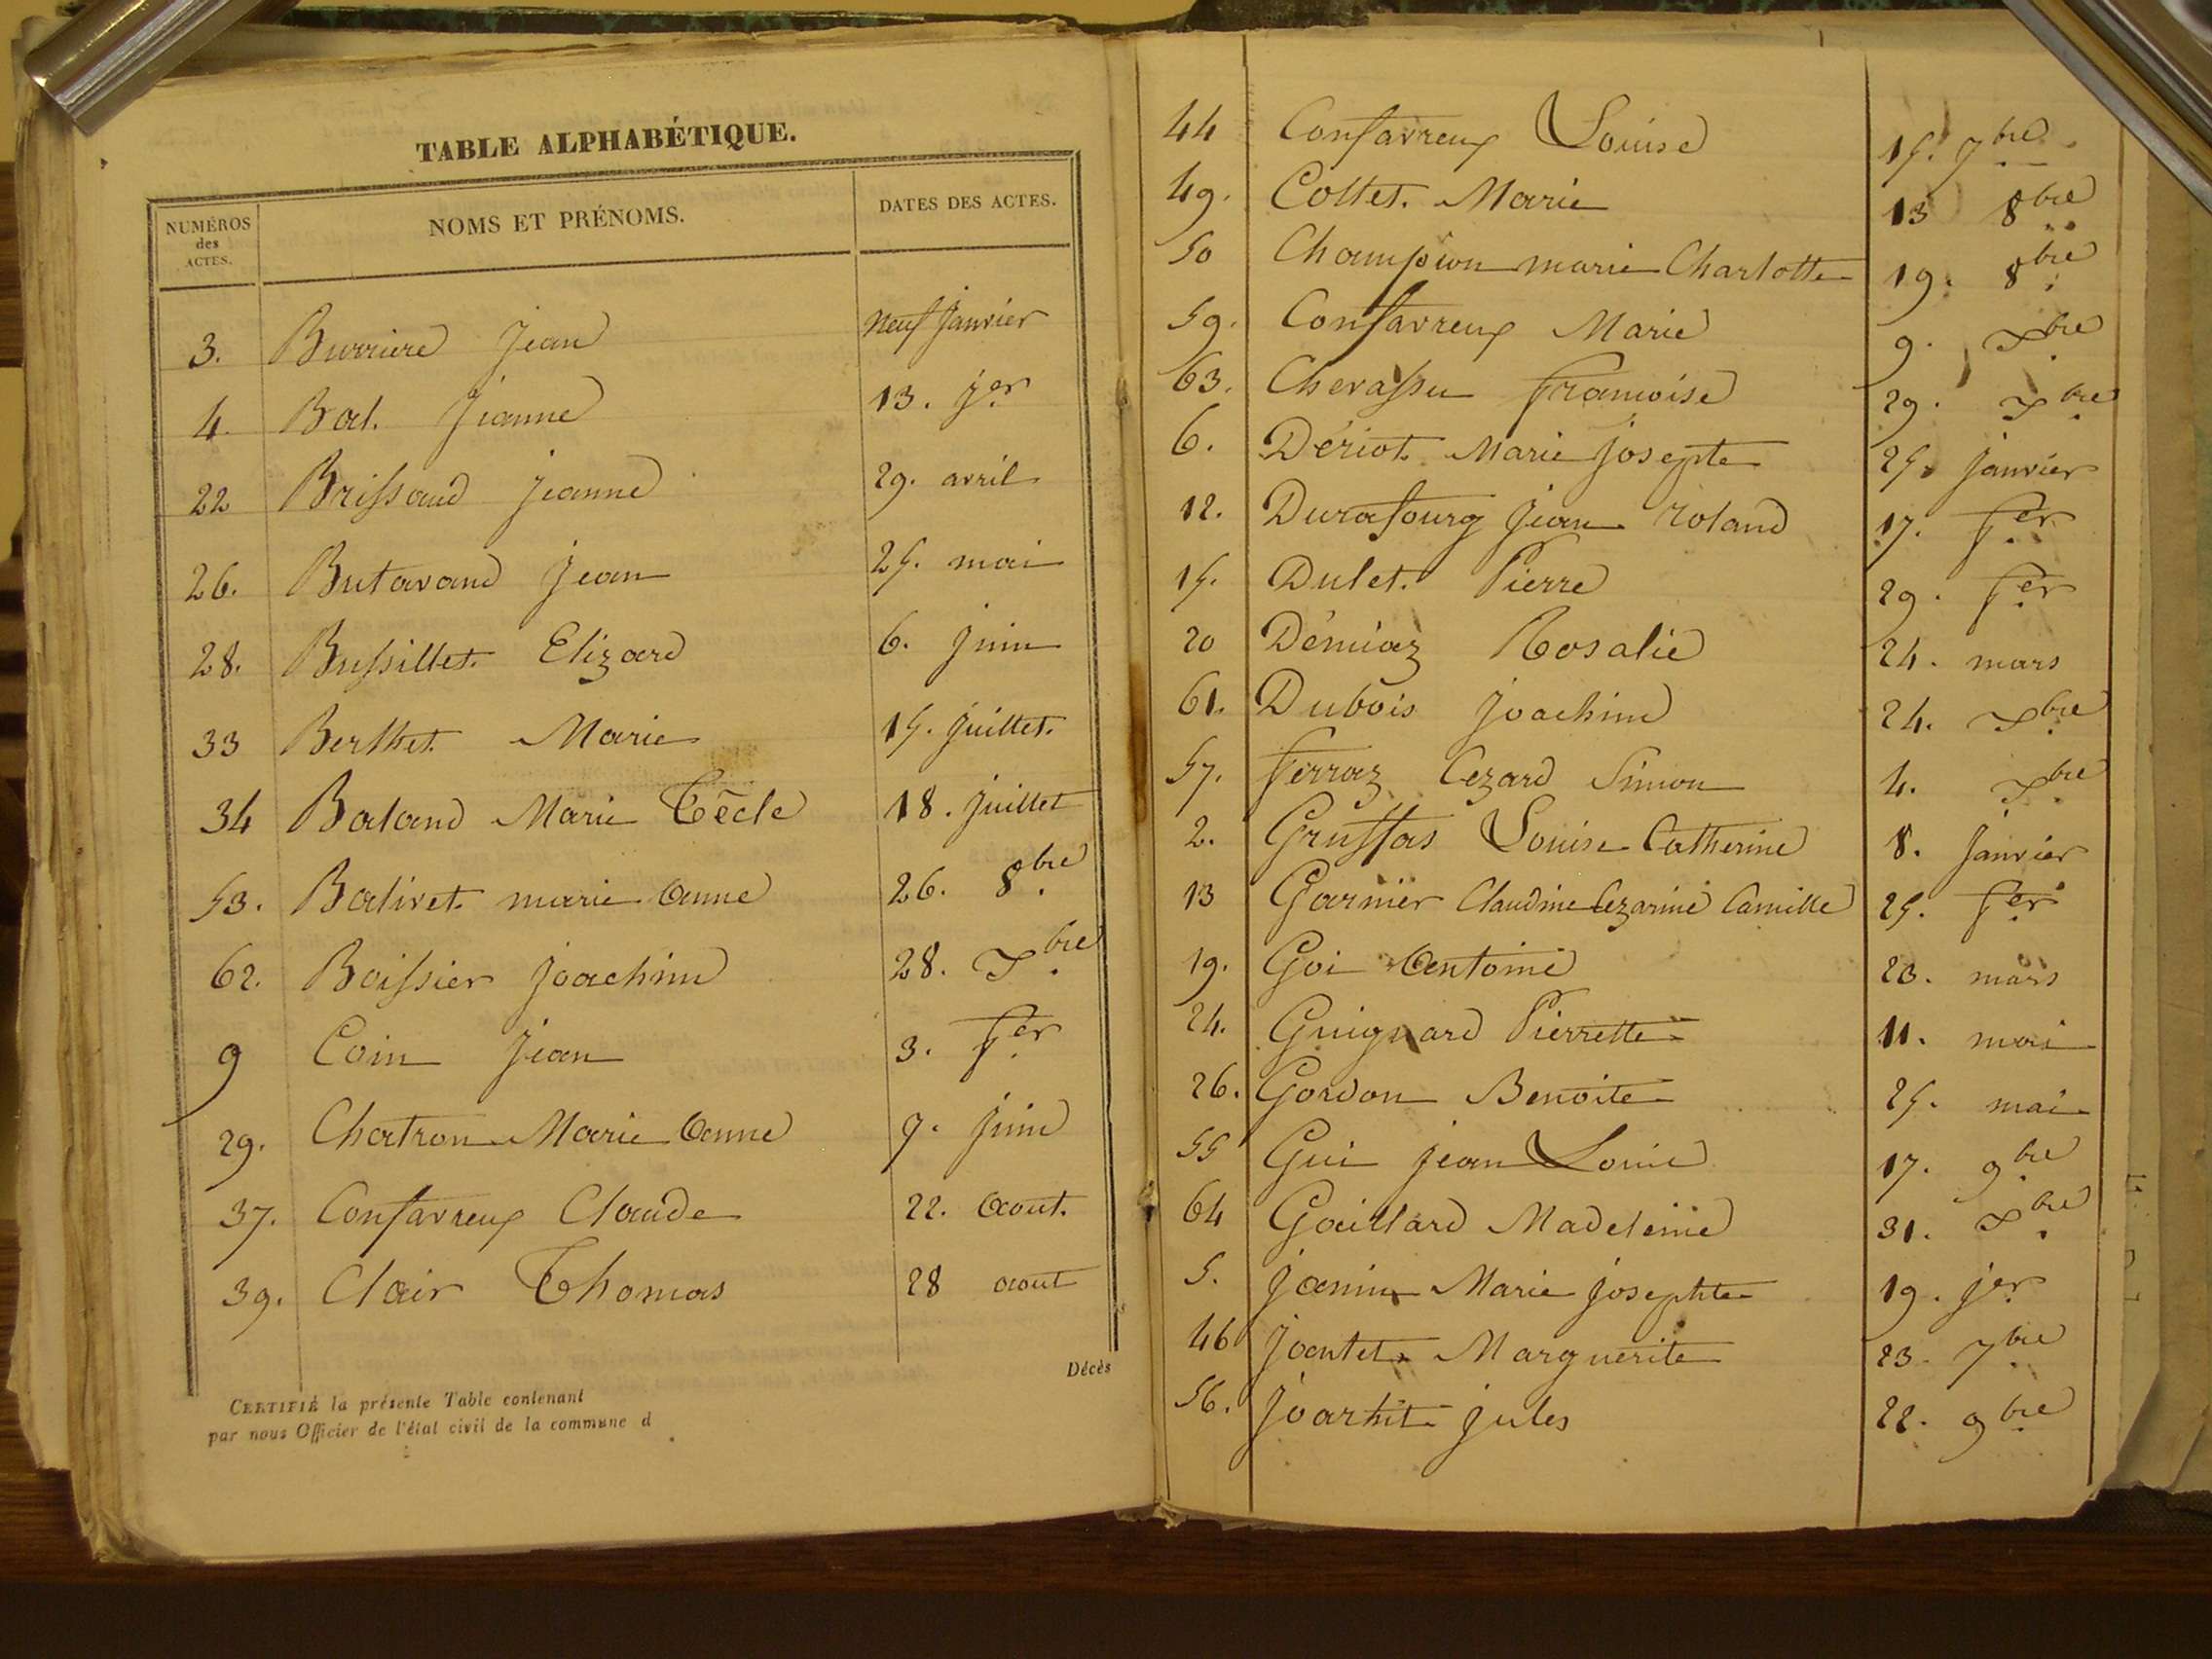 TABLE ALPHABÉTIQUE.
NUMÉROS des ACTES. NOMS ET PRÉNOMS. DATES DES ACTES.
3. Burriere Jean neuf janvier
4. Bal. Jeanne 13. jer
22 Brissaud jeanne 29. avril
26. Butavand Jean 25. mai
28. Bussillet Elizard 6. juin
33 Berthet Marie 15. juillet.
34 Baland Marie Tècle 18. juillet
53. Balivet marie anne 26. 8bre
62. Boissier joachim 28. Xbre
9 Coin Jean 3. fer
29. Chatron Marie anne 9. juin
37. Confavreux Claude 22. aout.
39. Clair Thomas 28 aout
Décès
CERTIFIÉ la présente Table contenant
par nous Officier de l'état civil de la commune d
44 Confavreux Louise 15. 7bre
49. Collet. Marie 13 8bre
50 Champion marie Charlotte 19. 8bre
59. Confavreux Marie 9. Xbre
63. Chevassu françoise 29. Xbre
6. Dériot Marie josepte 25. janvier
12. Durafourg Jean roland 17. fer
15. Dulet. Pierre 29. fer
20 Démiaz Rosalie 24. mars
61. Dubois joachim 24. Xbre
57. ferraz Cezard Simon 4. Xbre
2. Gruffas Louise Catherine 8. janvier
13 Garnier Claudine Cezarine Camille 25. fer
19. Goi antoine 23. mars
24. Guignard Pierrette 11. mai
26. Gordon Benoite 25. mai
55 Gui jean Louie 17. 9bre
64 Gaillard Madeleine 31. Xbre
5. janin Marie josephte 19. jer
46 jantet Marguerite 23. 7bre
56. jules 22. 9bre